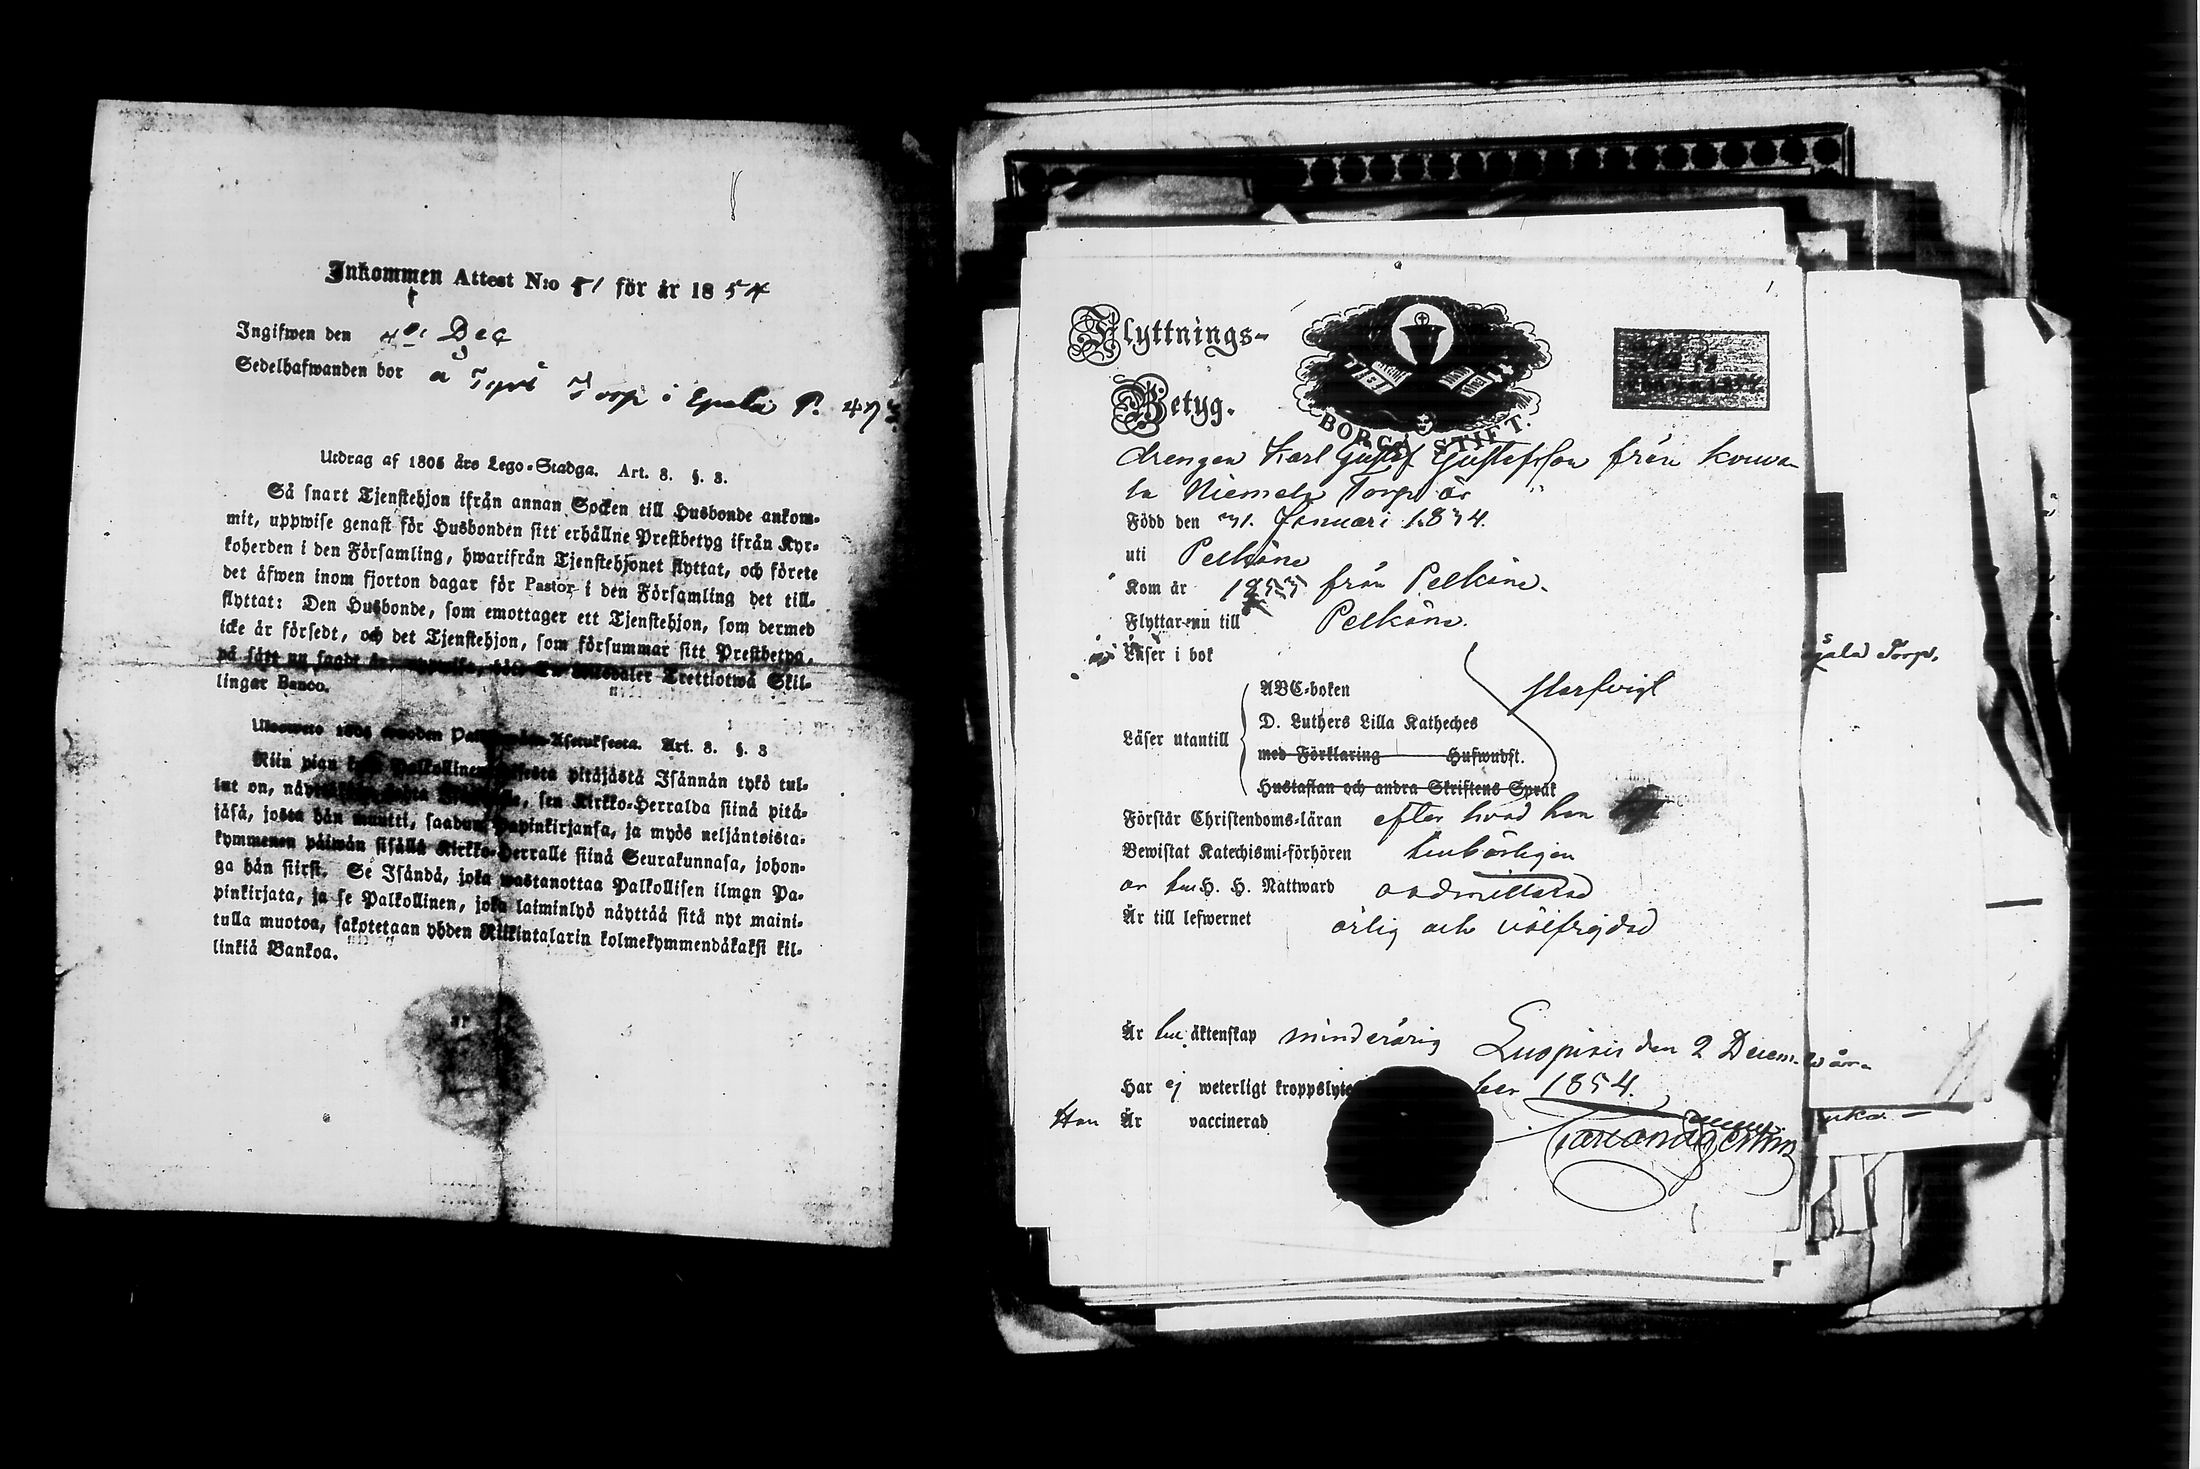 Inkommen Attest N:o 51 för år 1854
Ingifwen den Dec
Sedelhafwanden bor å Torp i Epala P. 473
Utdrag af 1805 års Lego-Stadga. Art. 8. §. 3.
Så snart Tjenstehjon ifrån annan Socken till Husbonde ankom-
mit, uppwise genast för Husbonden sitt erhållne Prestbetyg ifrån Kyr-
koherden i den Församling, hwarifrån Tjenstehjonet flyttat, och förete
det äfwen inom fjorton dagar för Pastor i den Församling det till-
flyttat: Den Husbonde, som emottager ett Tjenstehjon, som dermed
icke är försedt, och det Tjenstehjon, som försummar sitt Prestbetyg,
på sätt nu sagdt är, Riksdaler Trettiotwå Skil-
lingar Banco.
Art. 8. §. 3
Niin pian pitäjästä Isännän tykö tul-
lut on, sen Kirkko-Herralda siinä pitä-
jäsä, josta hän muutti, saadun Papinkirjansa, ja myös neljäntoista-
kymmenen päiwän sisällä Kirkko-Herralle siinä Seurakunnasa, johon-
ga hän siirst. Se Isändä, joka wastanottaa Palkollisen ilman Pa-
pinkirjata, ja se Palkollinen, joka laiminlyö näyttää sitä nyt maini-
tulla muotoa, sakotetaan yhden Riikintalarin kolmekymmendäkaksi kil-
linkiä Bankoa.
Flyttnings-
Betyg.
BORGÅ STIFT.
drengen Karl Gustaf Gustafsson från Kouva-
la Niemelä Torp är
Född den 31. Januari 1834.
uti Pelkäne
Kom år 1853 från Pelkäne.
Flyttar nu till Pelkäne.
Läser i bok
ABC-boken
D. Luthers Lilla Katheches
Läser utantill
med Förklaring Hufwudst.
Hustaflan och andra Skriftens Språk
Förstår Christendoms-läran efter hvad han
Bewistat Katechismi-förhören behörligen
H. H. Nattward admitterad
Är till lefwernet ärlig och välfrejdad
Är äktenskap minderårig
Luopiois den 2 Decem-
ber 1854.
Har ej weterligt kroppslyte
Han Är vaccinerad
Torp.